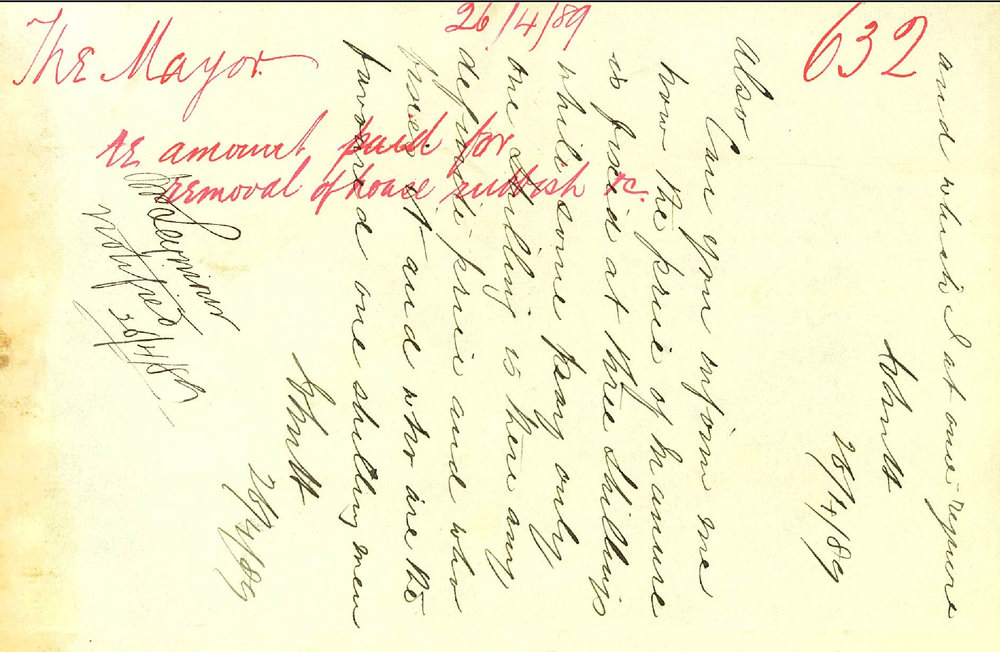 26/4/89
632
The Mayor.
re amount paid for
removal of house rubbish &c.
and which I at once require
28/4/89
Also
Can you inform me
how the price of manure
is fixed at three shillings
while some pay only
one shilling is there any
definite price and who
fixes it and who are the
favored one shilling men
28/4/89
notified
30/4/89